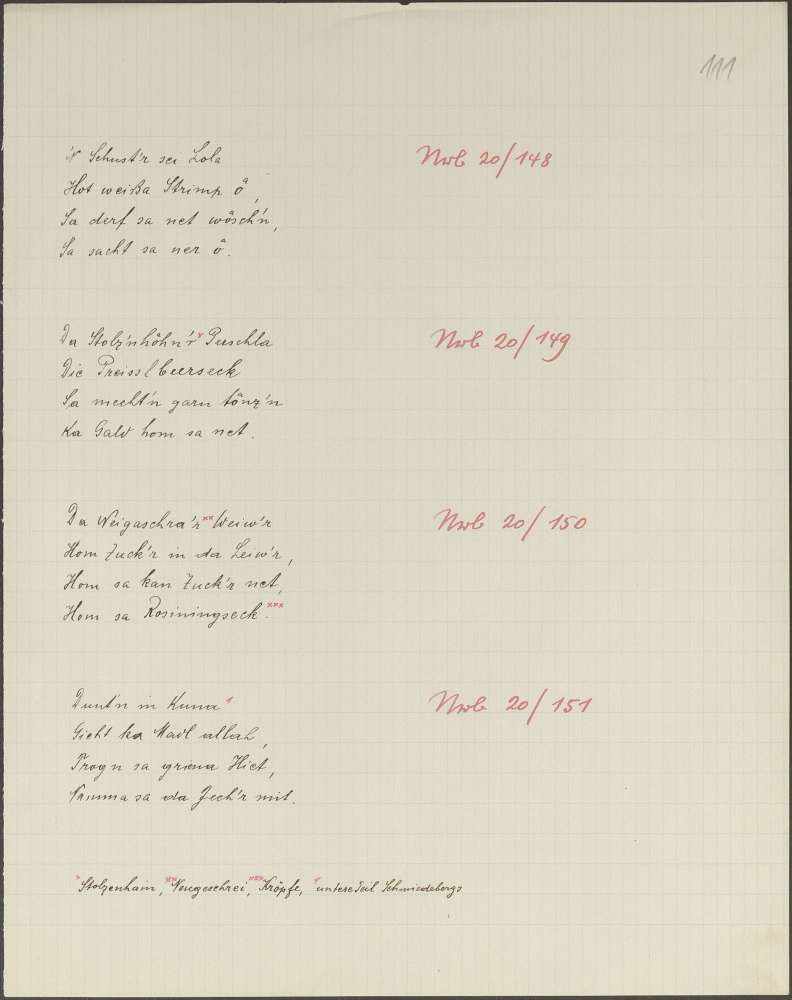 111
'N Schust'r sei Lola
Nwb 20/148
Hot weißa Strimp å,
Sa derf sa net wåsch'n,
Sa sacht sa ner å.
Da Stolz'nhåhn'r x Puschla
Nwb 20/149
Die Preisslbeerseck
Sa mecht'n garn tånz'n
Ka Gald hom sa net.
Da Neigaschra'r xx Weiw'r
Nwb 20/150
Hom Zuck'r in da Leiw'r,
Hom sa kan Zuck'r net,
Hom sa Rosiningseck. xxx
Dunt'n in Kuna 1
Nwb 20/151
Gieht ka Madl allah,
Trogn sa griena Hiet,
Namma sa da Jech'r mit.
x Stolzenhain, xx Neugeschrei, xxx Kröpfe, 1 untere Teil Schmiedebergs